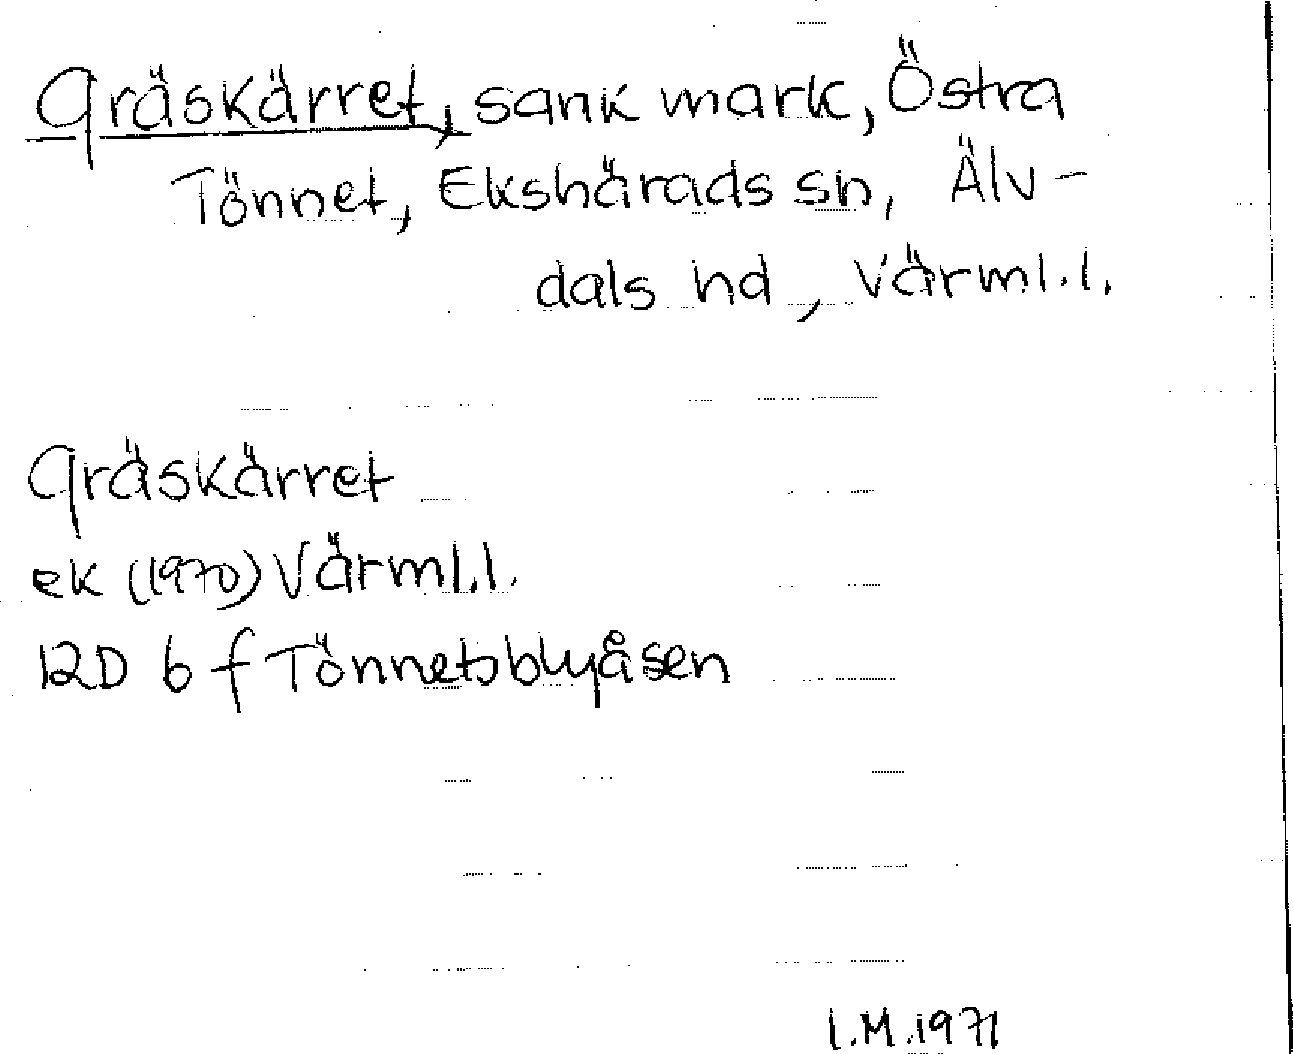 Gräskärret, sank mark, Östra
Tönnet, Ekshärads sn, Älv-
dals hd, Värml.l.
Gräskärret
ek (1970) Värml.l.
12D 6 f Tönnetsblyåsen
I.M.1971